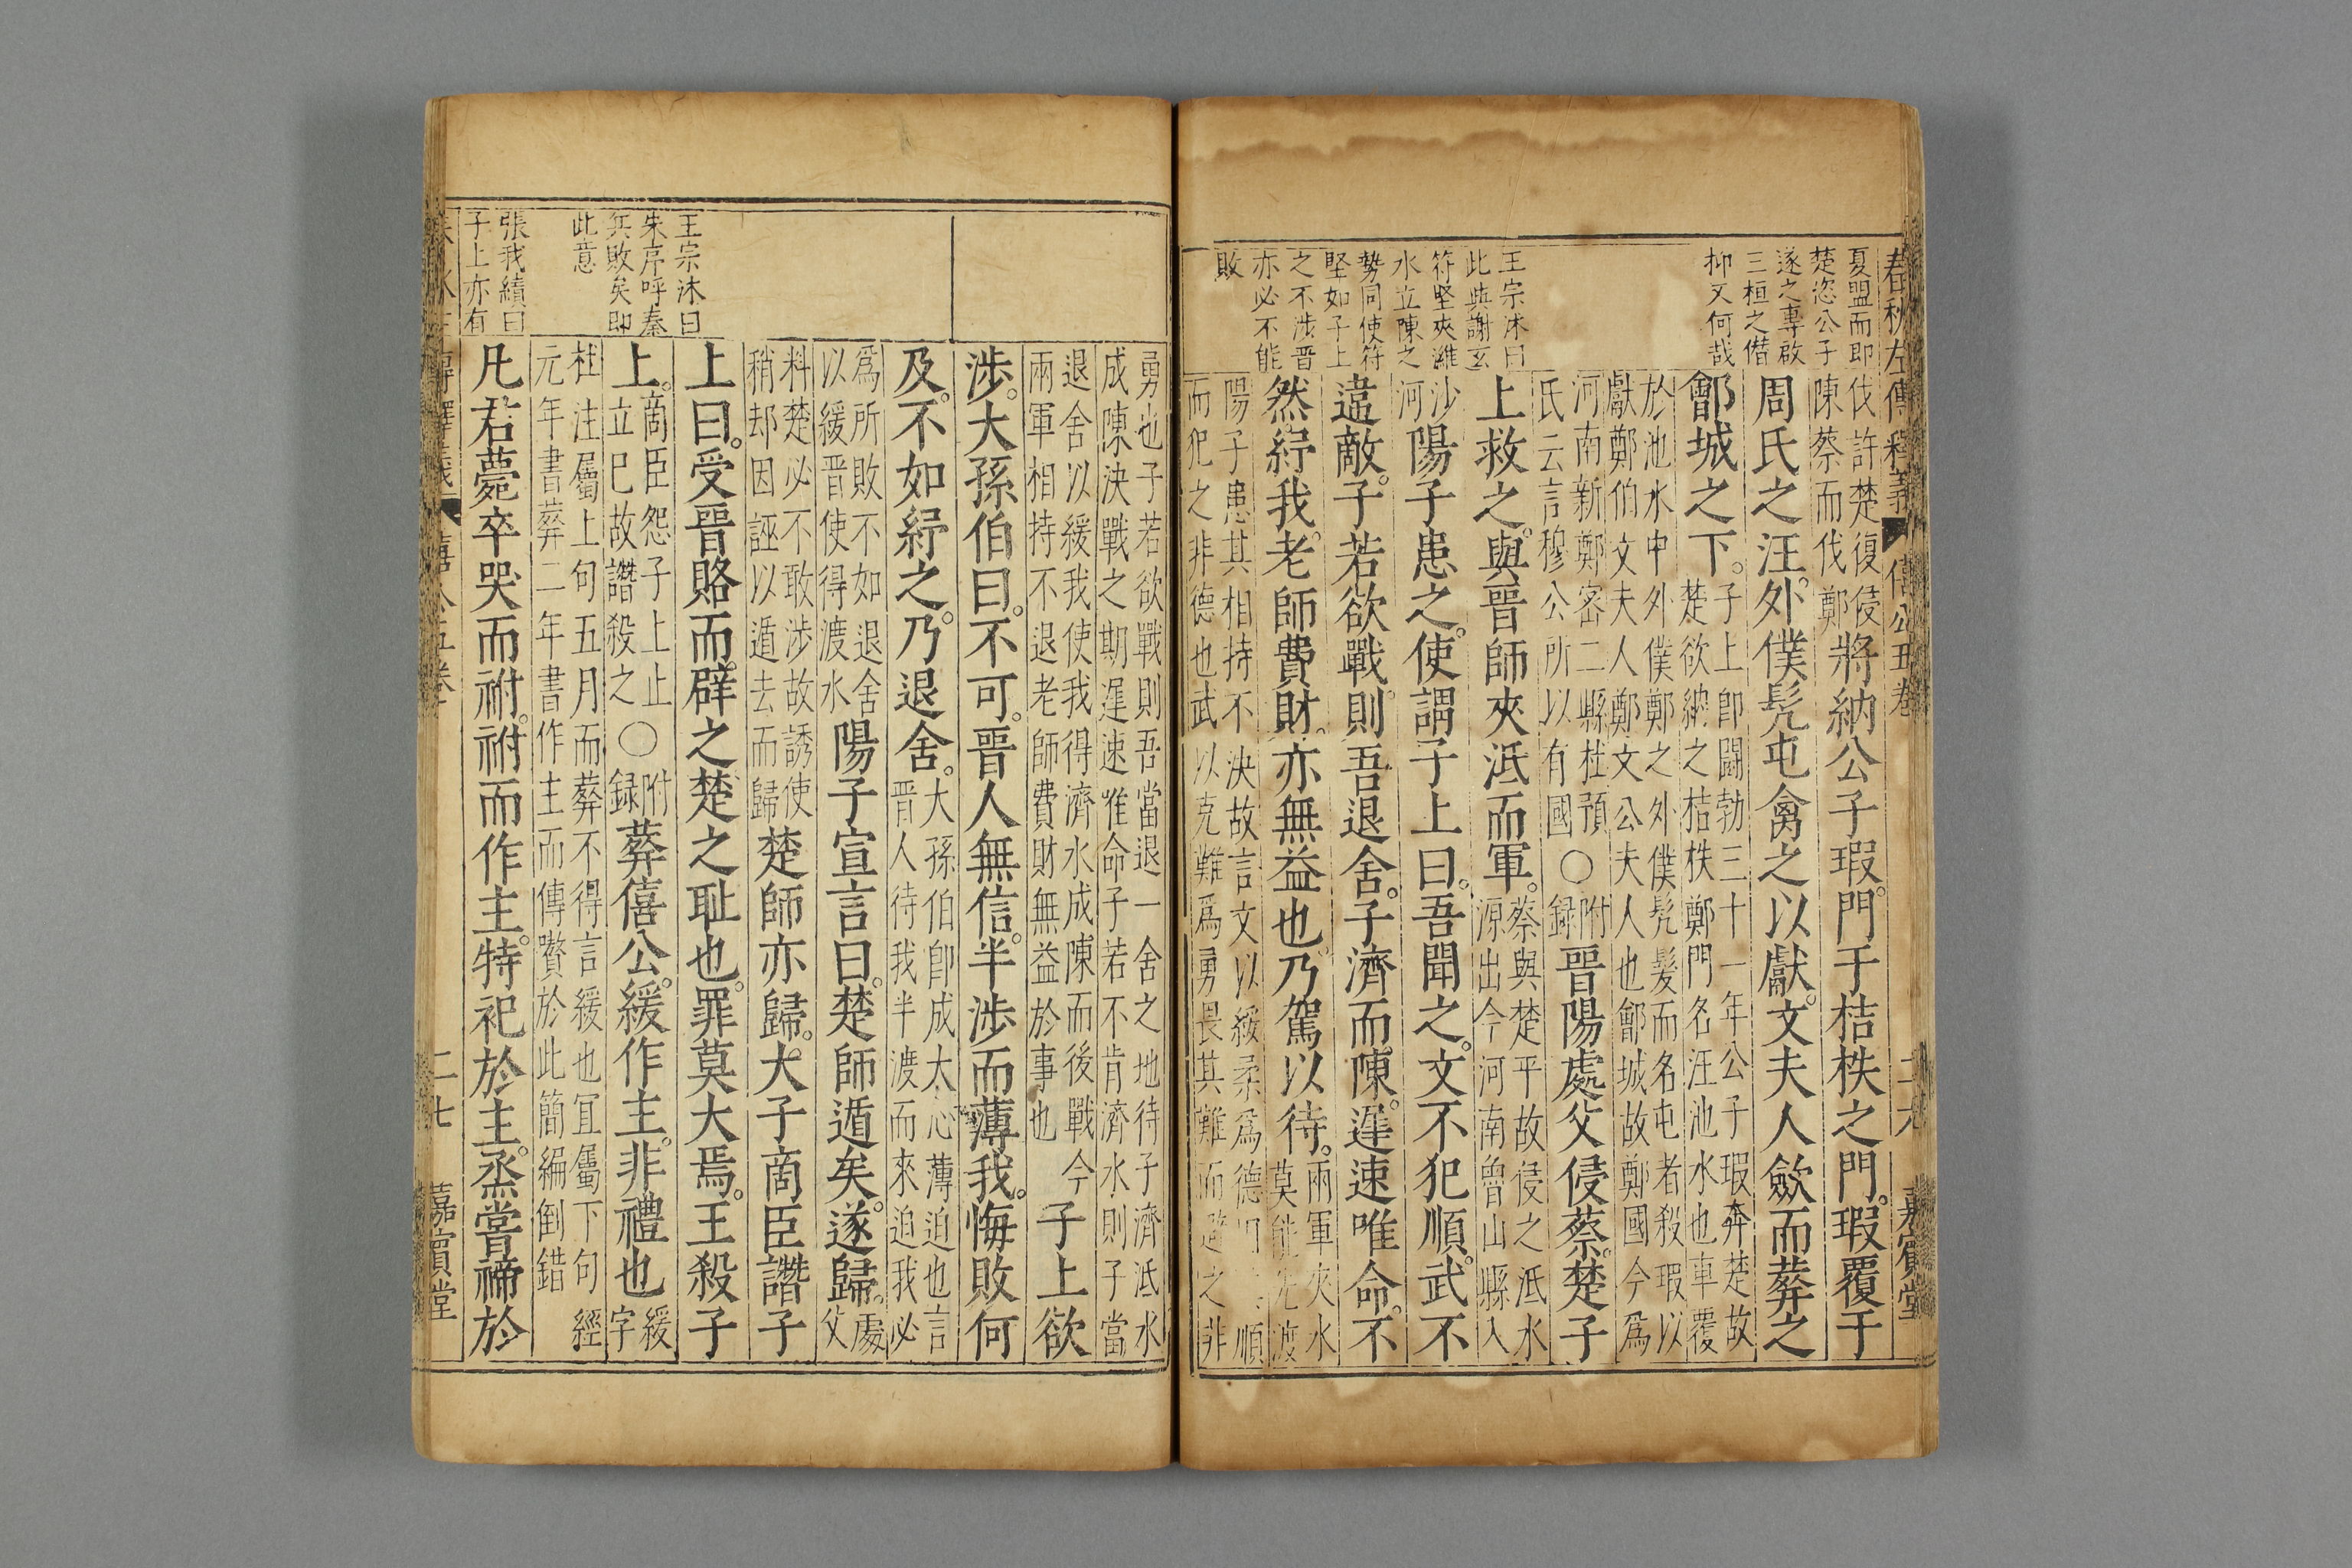 春秋左傳釋義 僖公五卷 二十六 嘉賓堂
夏盟而即
楚恣公子
遂之專啟
三桓之僣
抑又何哉
王宗沐曰
此與謝玄
符堅夾淝
水立陳之
勢同使符
堅如子上
之不渉晋
亦必不能
敗
伐許楚復侵
陳蔡而伐鄭
將納公子瑕門于桔柣之門瑕覆于
周氏之汪外僕髠屯禽之以獻文夫人歛而葬之
鄶城之下
子上卽鬪勃三十一年公子瑕奔楚故
楚欲納之桔柣鄭門名汪池水也車覆
於池水中外僕鄭之外僕髠髮而名屯者殺瑕以
獻鄭伯文夫人鄭文公夫人也鄶城故鄭國今爲
河南新鄭密二縣杜預
氏云言穆公所以有國
○
附
録
晉陽處父侵蔡楚子
上救之與晉師夾泜而軍
蔡與楚平故侵之泜水
源出今河南魯山縣入
沙
河
陽子患之使謂子上曰吾聞之文不犯順武不
違敵子若欲戰則吾退舍子濟而陳遲速唯命不
然紓我老師費財亦無益也乃駕以待
兩軍夾水
莫能先渡
陽子患其相持不決故言文以綏柔爲德順
而犯之非德也武以克難爲勇畏其難而避之非
王宗沐曰
朱序呼秦
兵敗矣即
此意
張我續曰
子上亦有
勇也子若欲戰則吾當退一舍之地待子濟泜水
成陳決戰之期遲速唯命子若不肯濟水則子當
退舍以緩我使我得濟水成陳而後戰今
兩軍相持不退老師費財無益於事也
子上欲
渉大孫伯曰不可晉人無信半渉而薄我悔敗何
及不如紓之乃退舍
大孫伯卽成大心薄迫也言
晋人待我半渡而來迫我必
爲所敗不如退舍
以緩晋使得渡水
陽子宣言曰楚師遁矣遂歸
處
父
料楚必不敢渉故誘使
稍却因誣以遁去而歸
楚師亦歸大子商臣譖子
上曰受晉賂而辟之楚之耻也罪莫大焉王殺子
上
商臣怨子上止
立巳故譖殺之
○
附
録
葬僖公緩作主非禮也
緩
字
杜注屬上句五月而葬不得言緩也宜屬下句經
元年書葬二年書作主而傳贅於此簡編倒錯
凡君薨卒哭而祔祔而作主特祀於主烝嘗禘於
二七 嘉賓堂